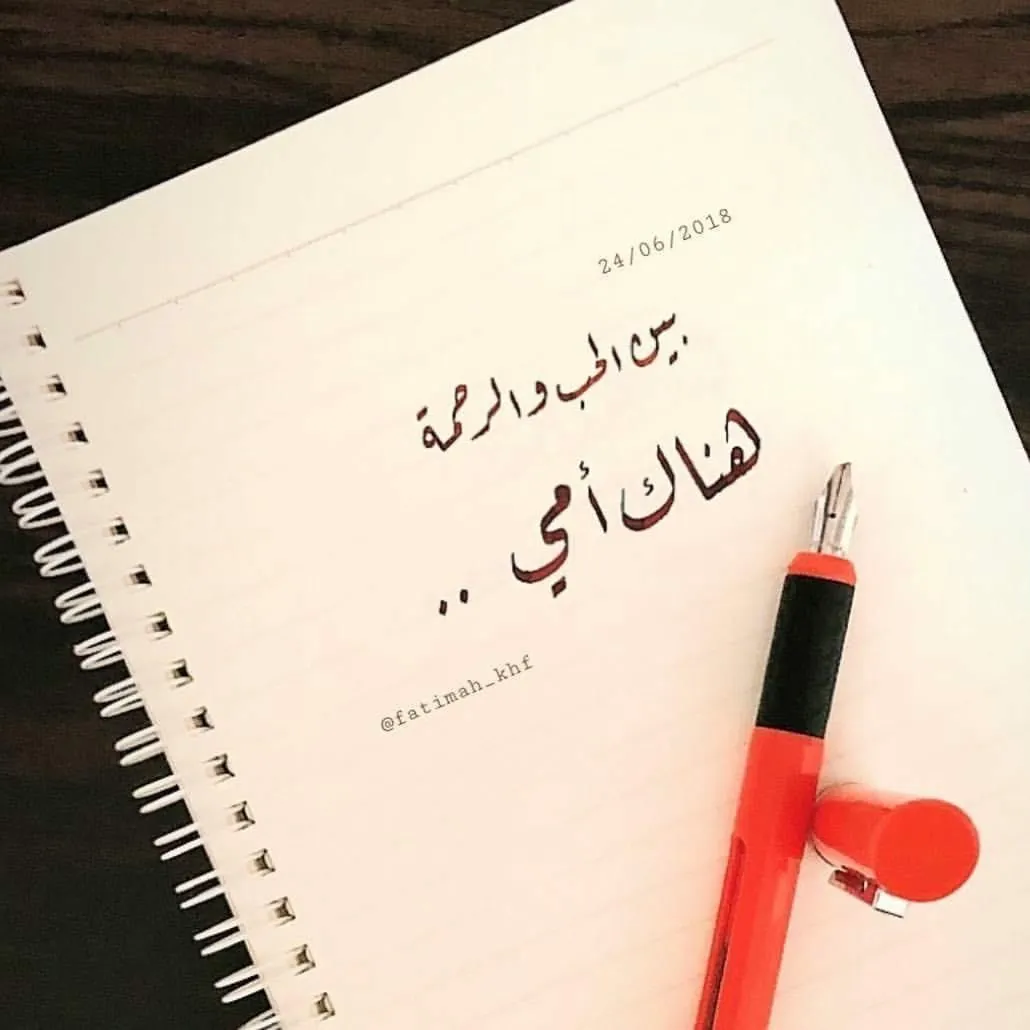 24/06/2018
بين الحب والرحمة
هناك أمي ..
@fatimah_khf